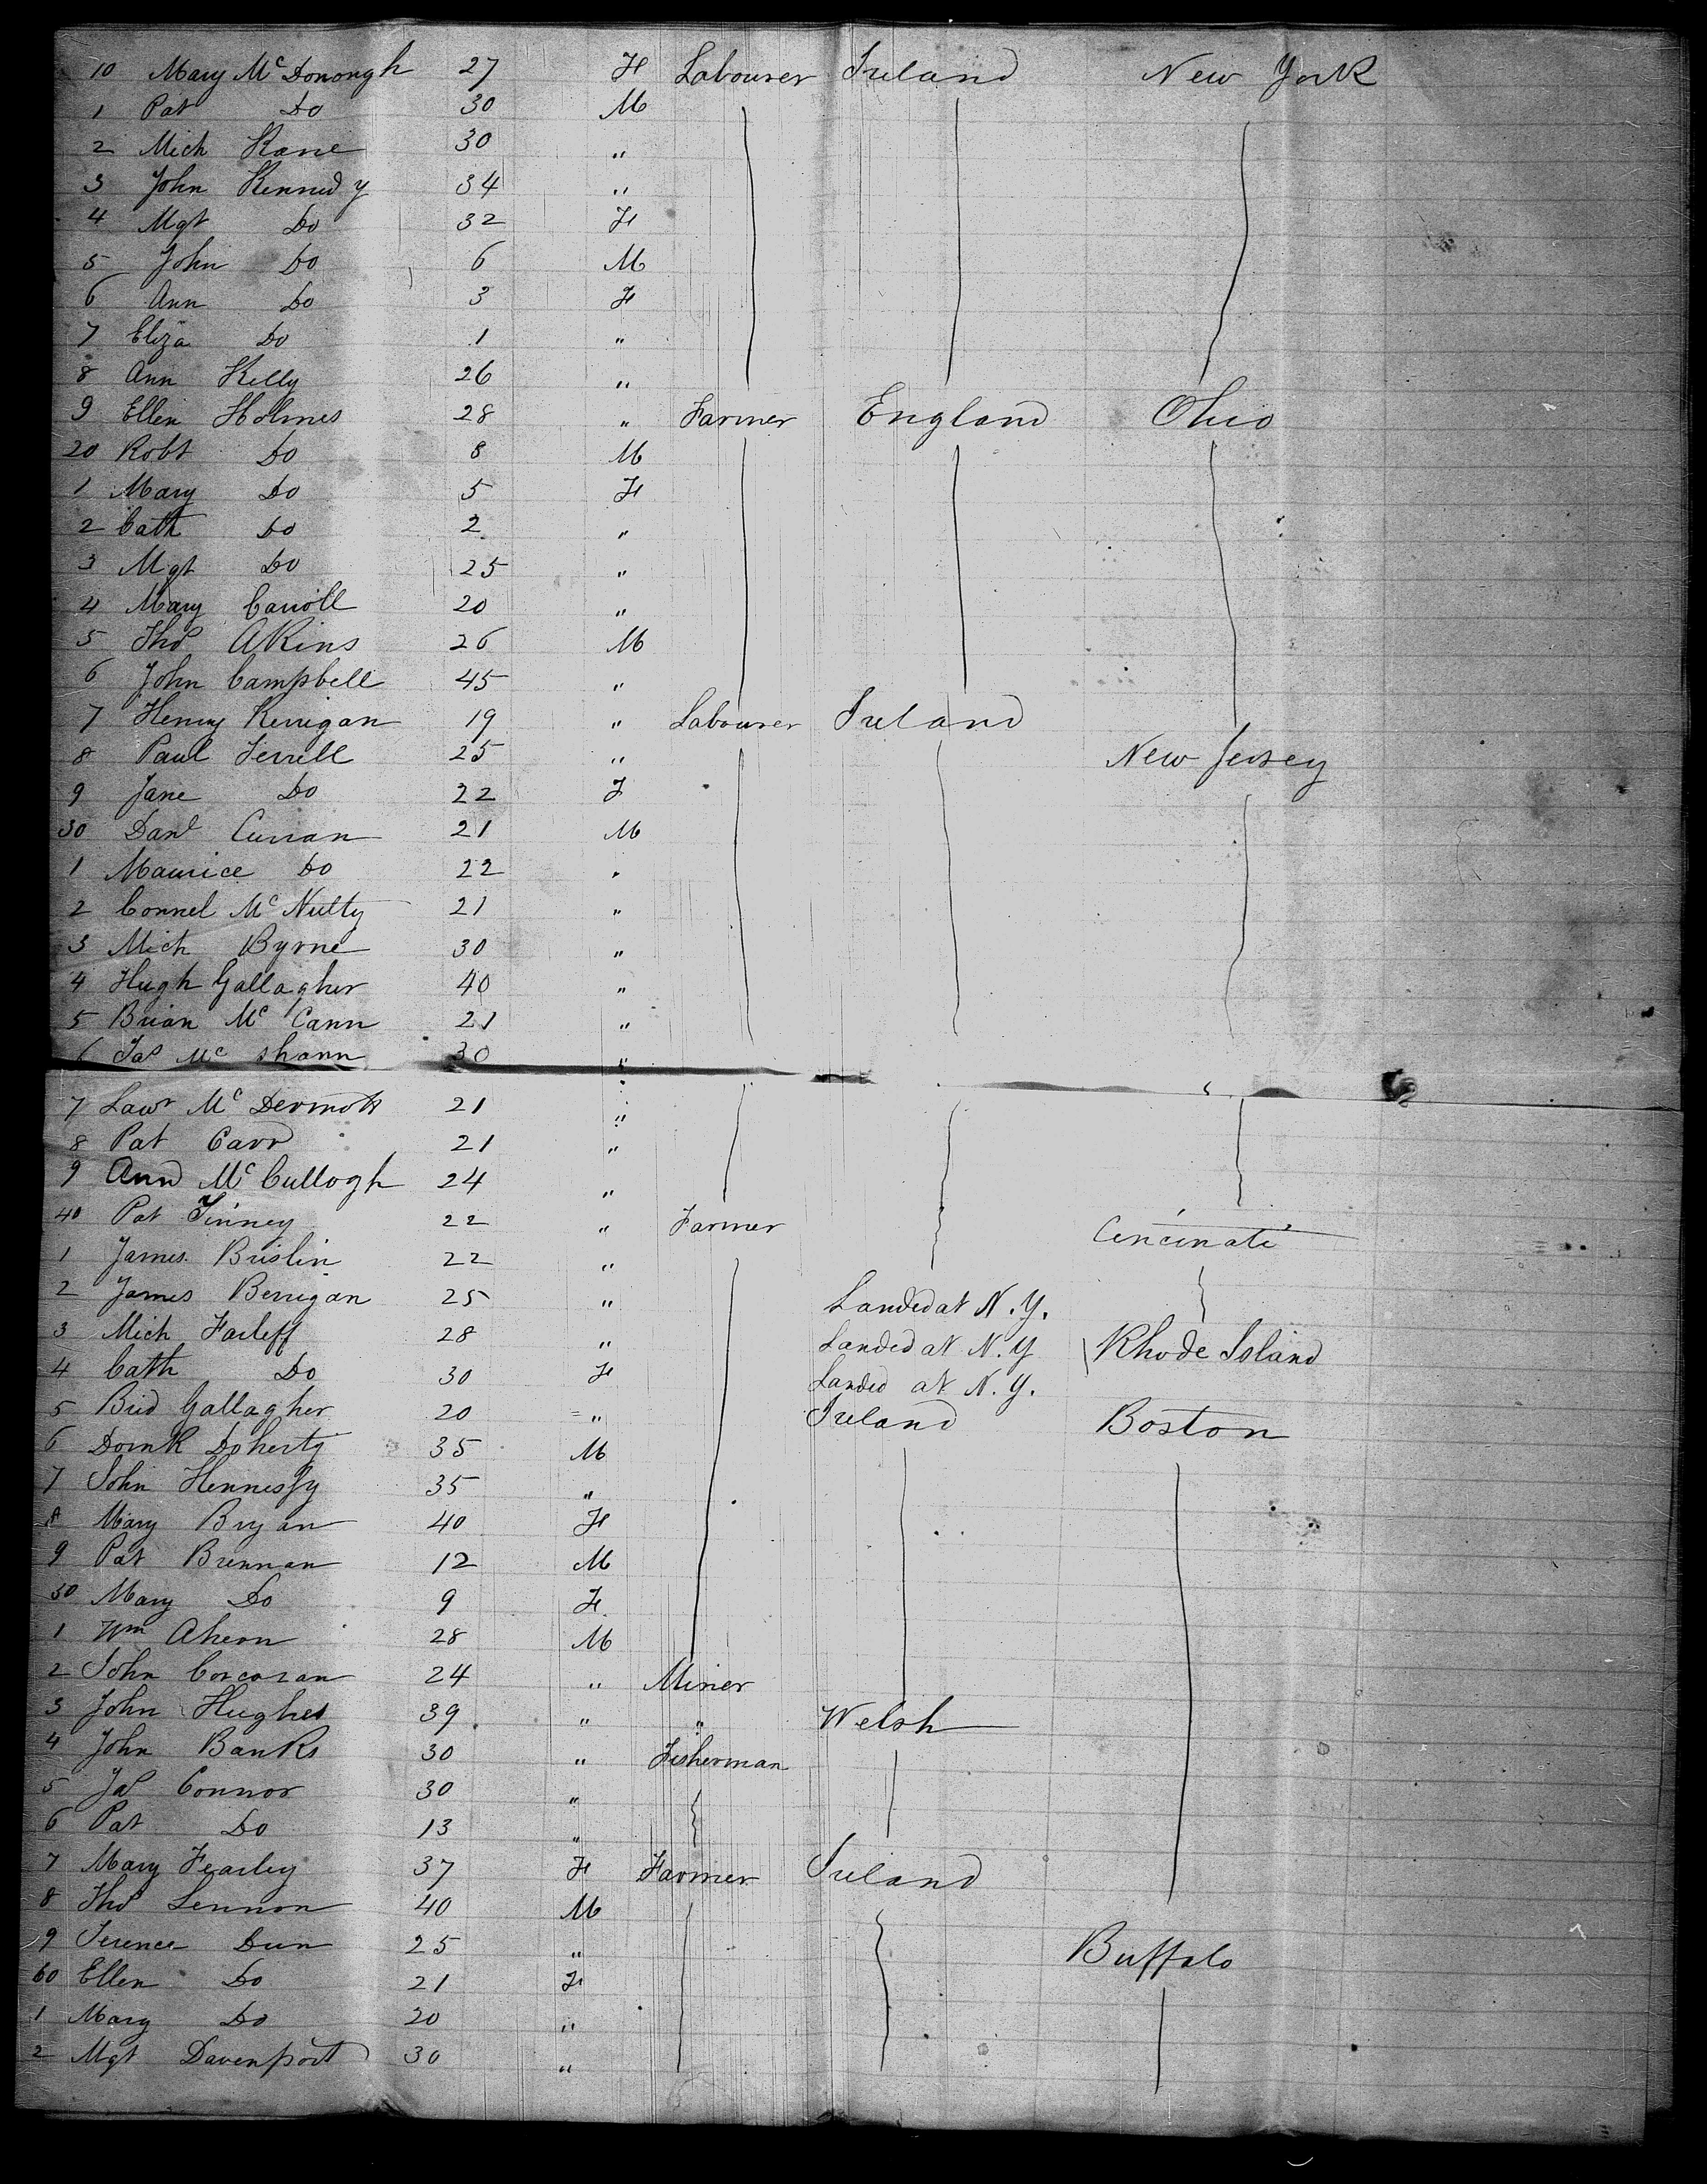 10 Mary McDonongh 27 F Labourer Ireland New York
1 Pat Do 30 M
2 Mich Kane 30 "
3 John Kennedy 34 "
4 Mgt Do 32 F
5 John Do 6 M
6 Ann Do 3 F
7 Eliza Do 1 "
8 Ann Kelly 26 "
9 Ellen Holmes 28 " Farmer England Ohio
20 Robt Do 8 M
1 Mary Do 5 F
2 Cath Do 2 "
3 Mgt Do 25 "
4 Mary Carroll 20 "
5 Thos Akins 26 M
6 John Campbell 45 "
7 Henry Kerrigan 19 " Labourer Ireland
8 Paul Ferrell 25 " New Jersey
9 Jane Do 22 F
30 Danl Curran 21 M
1 Maurice Do 22 "
2 Connel McNulty 21 "
3 Mich Byrne 30 "
4 Hugh Gallagher 40 "
5 Brian McCann 21 "
6 Jas Mc shann 30 "
7 Lawr McDermott 21 "
8 Pat Carr 21 "
9 Ann McCullogh 24 "
40 Pat Finney 22 " Farmer Cincinati
1 James Brislin 22 "
2 James Berrigan 25 " Landed at N.Y.
3 Mich 28 " Landed at N.Y Rhode Island
4 Cath Do 30 F Landed at N.Y.
5 Brid Gallagher 20 " Ireland Boston
6 Domk Doherty 35 M
7 John Hennessy 35 "
8 Mary Bryan 40 F
9 Pat Brennan 12 M
50 Mary Do 9 F
1 Wm Ahern 28 M
2 John Corcoran 24 " Miner
3 John Hughes 39 " " Welsh
4 John Banks 30 " Fisherman
5 Jas Connor 30 "
6 Pat Do 13 "
7 Mary Fearley 37 F Farmer Ireland
8 Thos Lennon 40 M
9 Terence Dun 25 " Buffalo
60 Ellen Do 21 F
1 Mary Do 20 "
2 Mgt Davenport 30 "